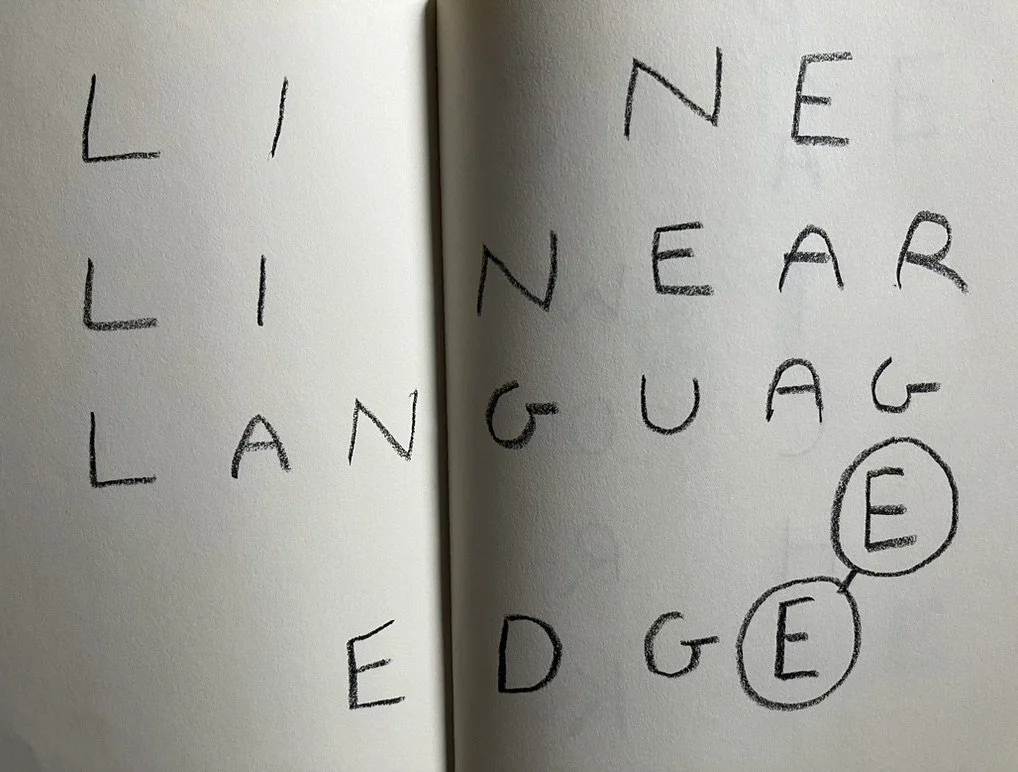 LI NE
LI NEAR
LANGUAG
E
EDGE